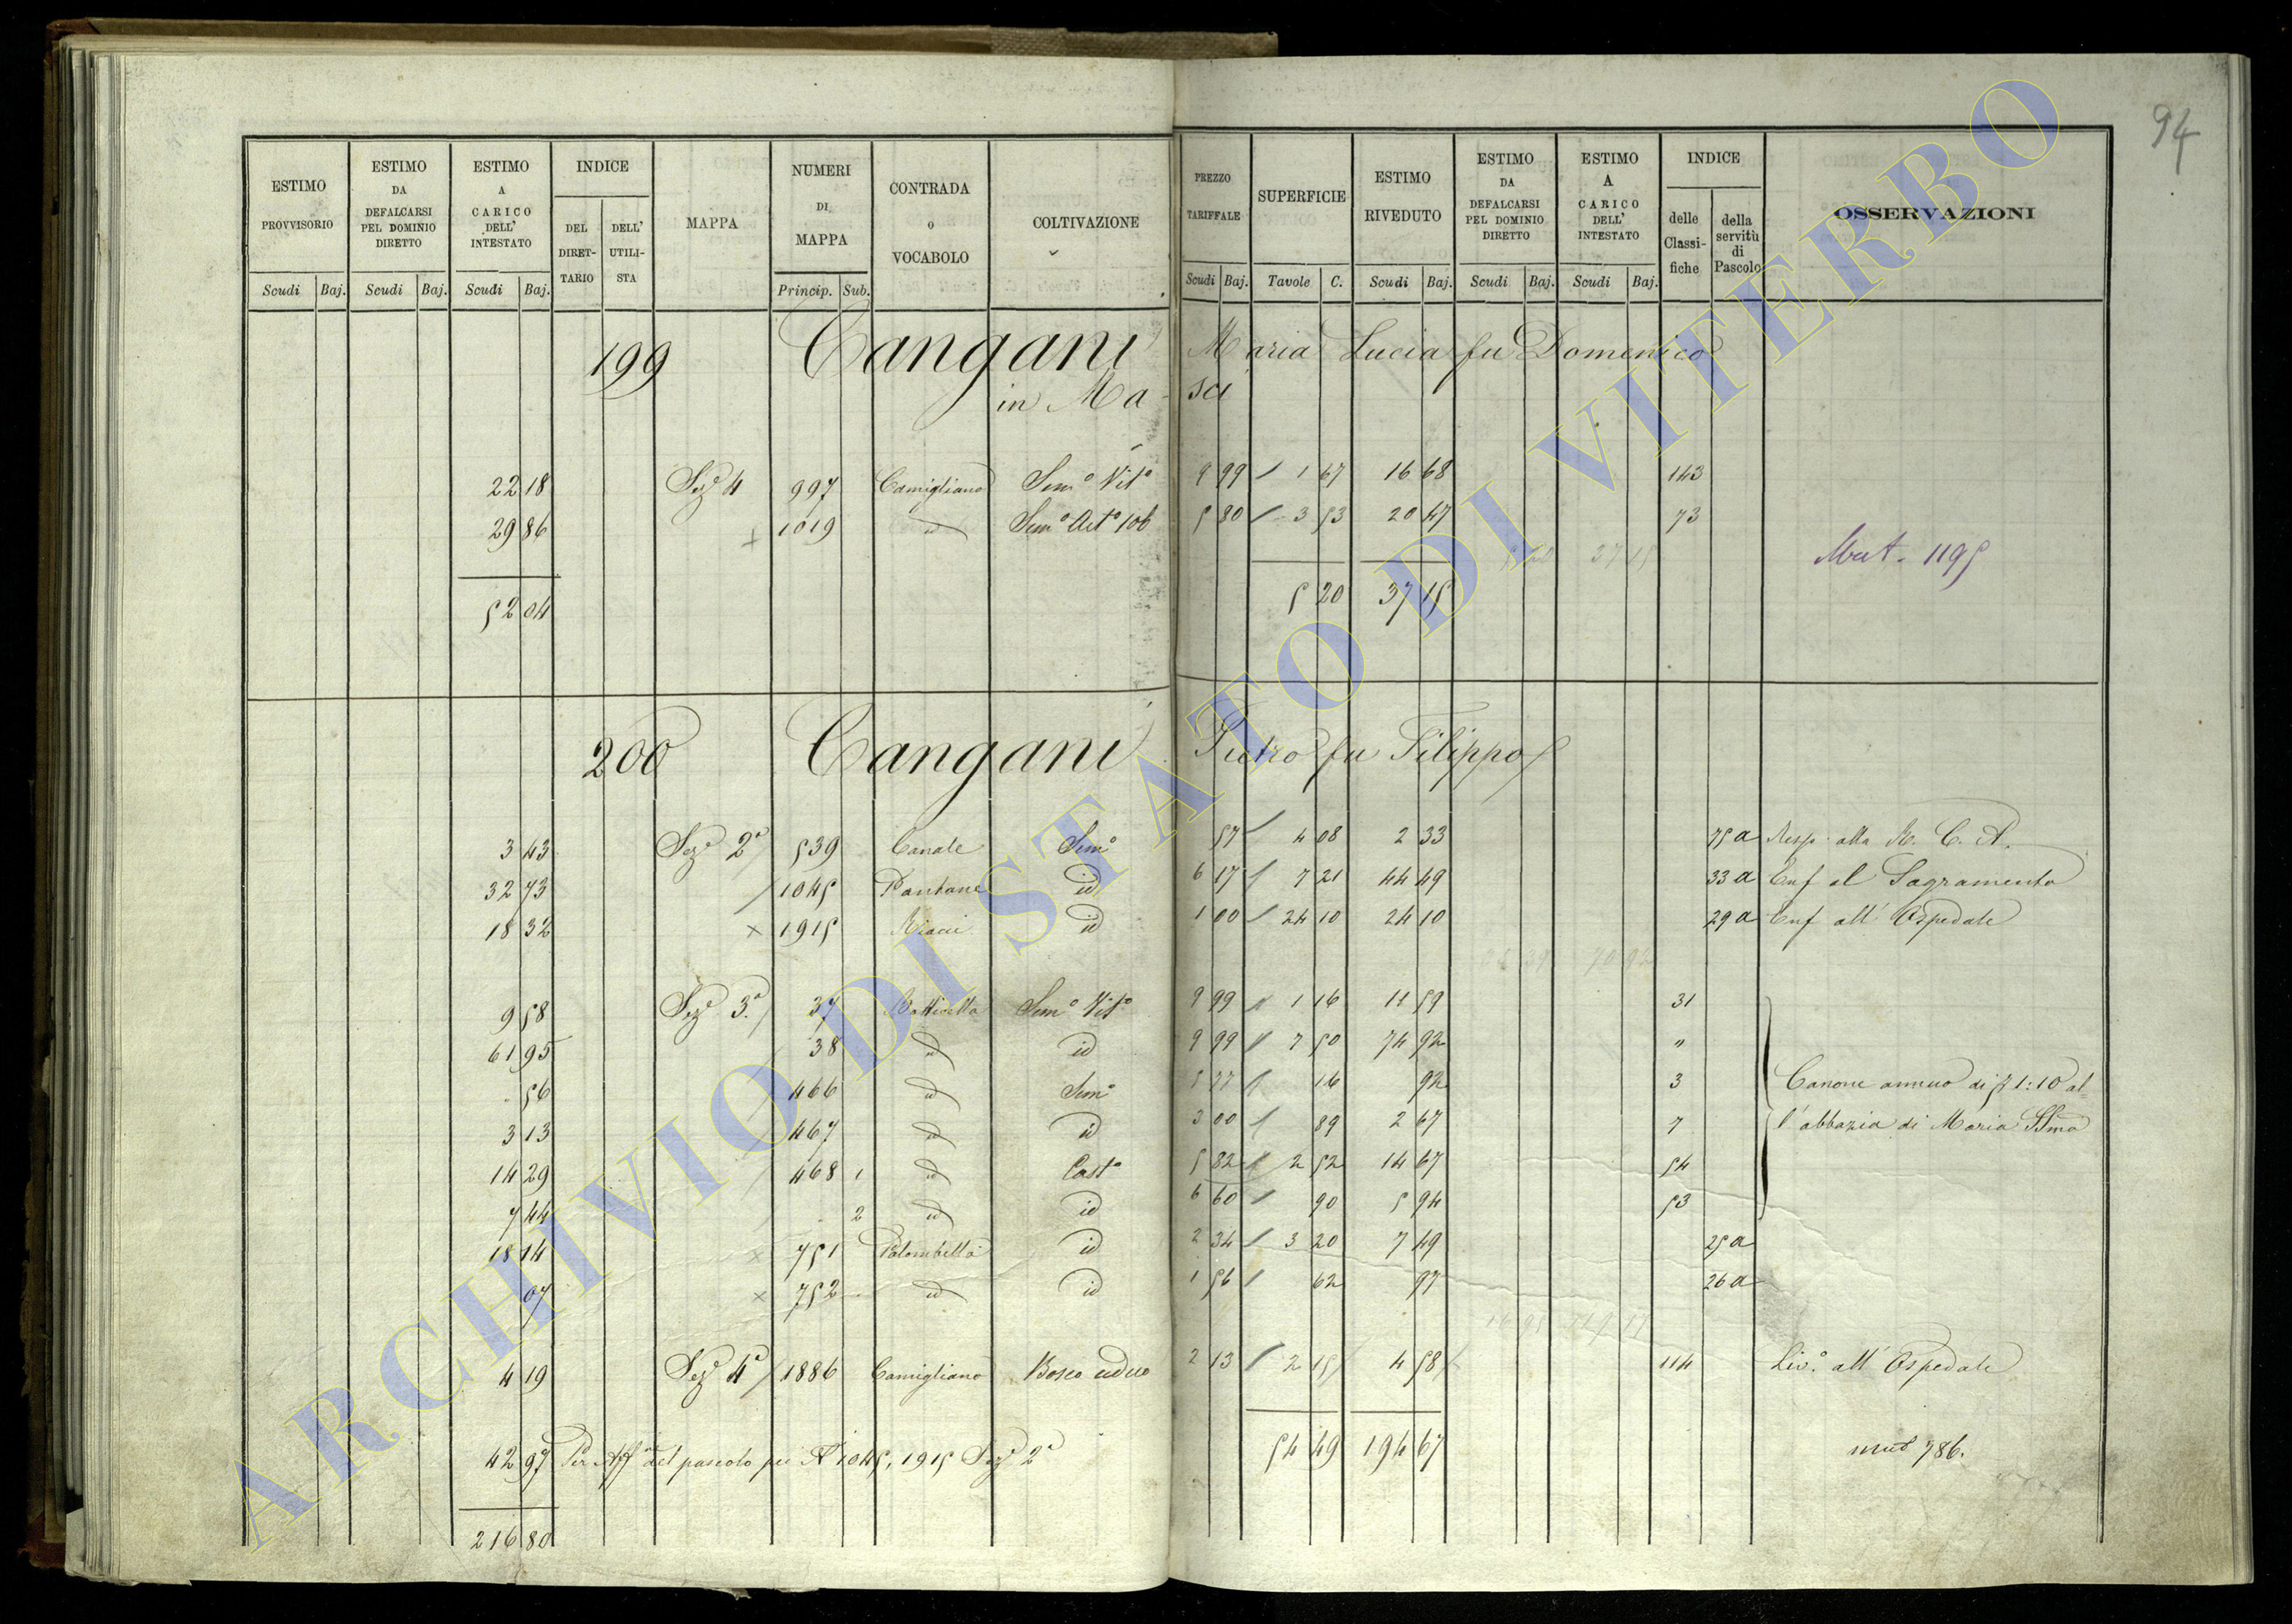 94
ESTIMO PROVVISORIO Scudi Baj.
ESTIMO DA DEFALCARSI PEL DOMINIO DIRETTO Scudi Baj.
ESTIMO A CARICO DELL' INTESTATO Scudi Baj.
INDICE DEL DIRET-TARIO DELL' UTILI-STA
MAPPA
NUMERI DI MAPPA Princip. Sub.
CONTRADA o VOCABOLO
COLTIVAZIONE
PREZZO TARIFFALE Scudi Baj.
SUPERFICIE Tavole C.
ESTIMO RIVEDUTO Scudi Baj.
ESTIMO DA DEFALCARSI PEL DOMINIO DIRETTO Scudi Baj.
ESTIMO A CARICO DELL' INTESTATO Scudi Baj.
INDICE delle Classi-fiche della servitù di Pascolo
OSSERVAZIONI
199 Cangani Maria Lucia fu Domenico
in Ma-sci
22 18 Sez.e 4 997 Camigliano Sem.o Vit.o 9 99 1 67 16 68 143
29 86 + 1019 id Sem.o Art.o 5 80 3 53 20 47 73
5 20 37 15
Mut. 1195
52 04 5 20 37 15
200 Cangani Pietro fu Filippo
3 43 Sez.e 2a 539 Canale Sem.o 57 4 08 2 33 75 a Resp. alla R. C. A.
32 73 1045 Pantane id 6 17 7 21 44 49 33 a Enf al Sagramento
18 32 × 1915 id 1 00 24 10 24 10 29 a Enf all' Ospedale
9 58 Sez.e 3.a 37 Sem.o Vit.o 9 99 1 16 11 59 31
61 95 38 id id 9 99 7 50 74 92 "
56 466 id Sem.o 5 77 16 92 3 Canone annuo di 1:10 al-
3 13 467 id id 3 00 89 2 67 7 l'abbazia di Maria SSma
14 29 468 1 id Cast.o 5 82 2 52 14 67 54
7 44 2 id id 6 60 90 5 94 53
18 14 × 751 Palombella id 2 34 3 20 7 49 25 a
07 × 752 id id 1 56 62 97 26 a
4 19 Sez.e 4a 1886 Camigliano Bosco ceduo 2 13 2 15 4 58 114 Liv.o all' Ospedale
42 97 Per Aff.ne del pascolo pei N 1045, 1915 Sez.e 2a 54 49 194 67 mut 786.
216 80
ARCHIVIO DI STATO DI VITERBO